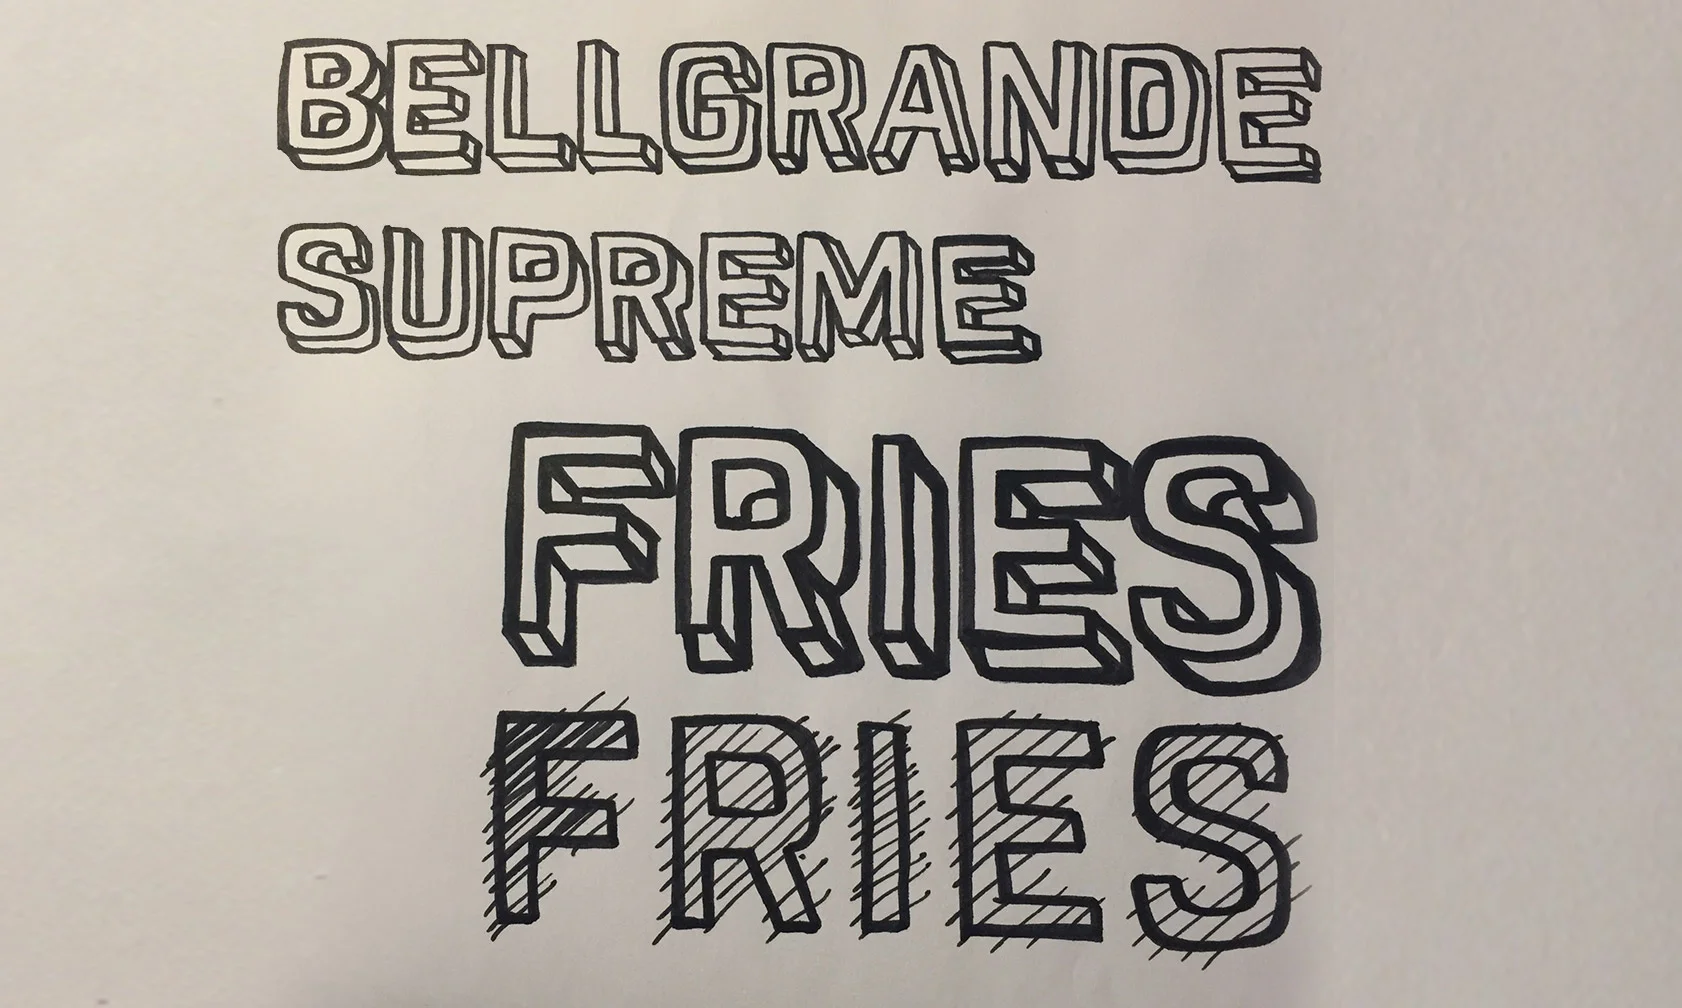 BELLGRANDE
SUPREME
FRIES
FRIES